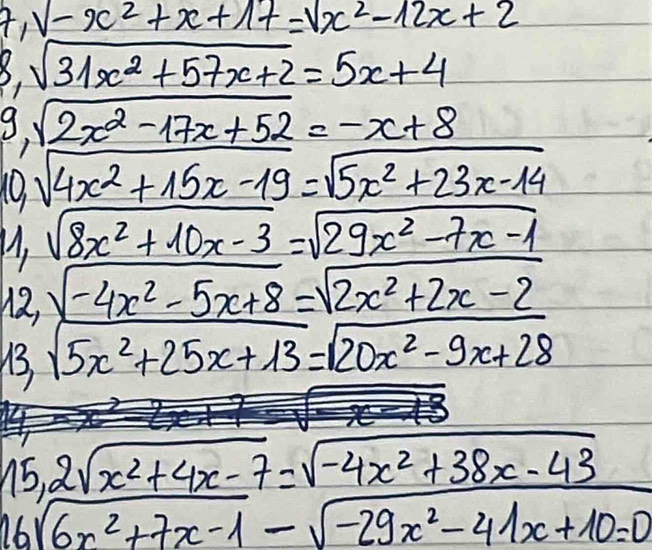 7, √-x² + x + 17 = √x² - 12x + 2
8, √31x² + 57x + 2 = 5x + 4
9, √2x² - 17x + 52 = -x + 8
10, √4x² + 15x - 19 = √5x² + 23x - 14
11, √8x² + 10x - 3 = √29x² - 7x - 1
12, √-4x² - 5x + 8 = √2x² + 2x - 2
13, √5x² + 25x + 13 = √20x² - 9x + 28
15, 2√x² + 4x - 7 = √-4x² + 38x - 43
16 √6x² + 7x - 1 - √-29x² - 41x + 10 = 0